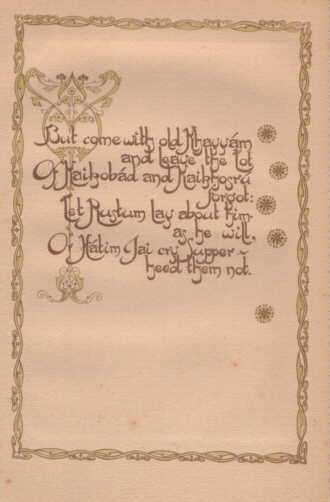 But come with old Khayyám
and leave the Lot
Of Kaikobád and Kaikhosrú
forgot:
Let Rustum lay about him
as he will,
Or Hátim Tai cry Supper -
heed them not.